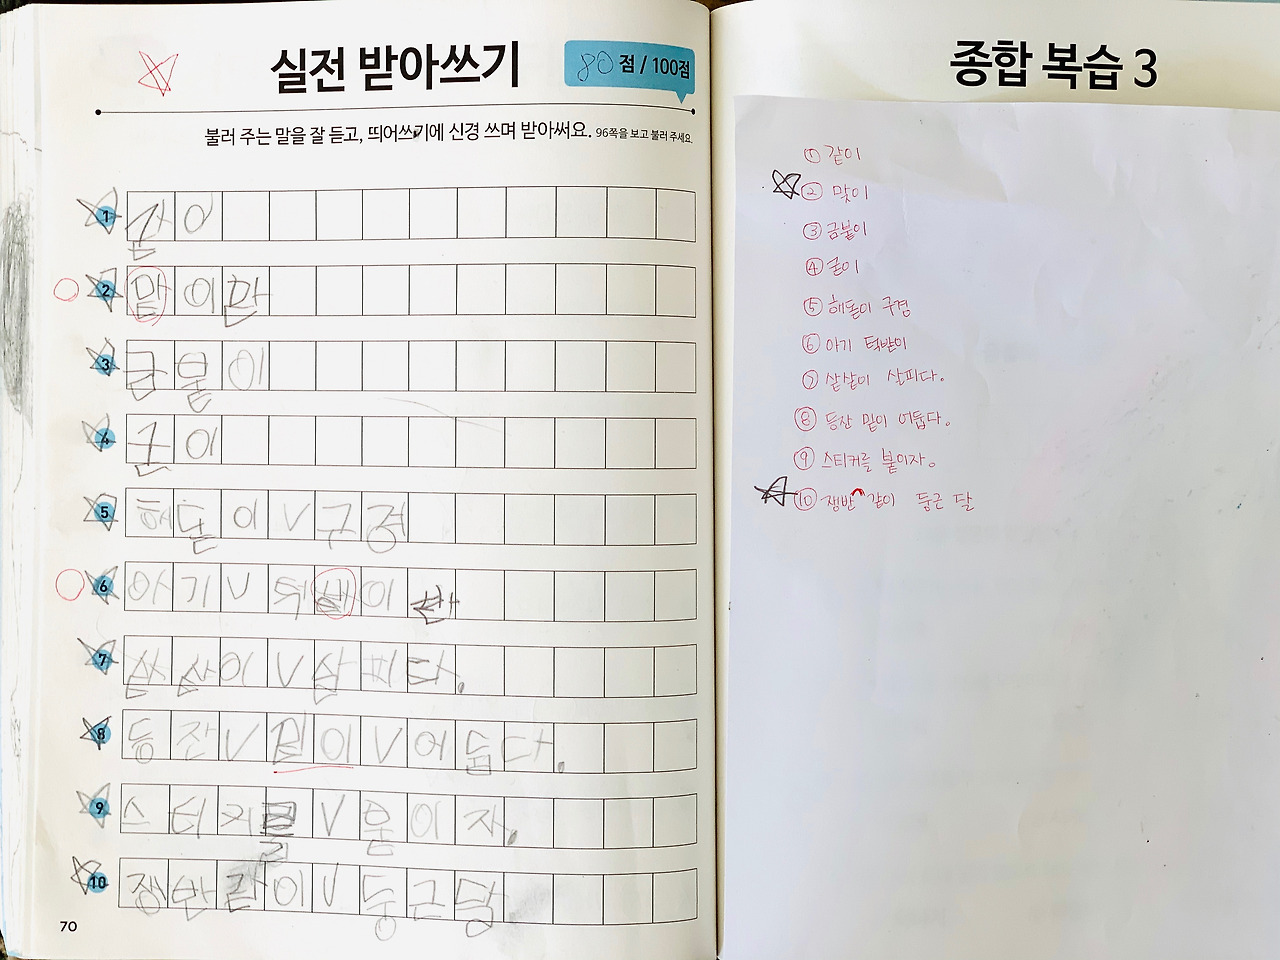 실전 받아쓰기
80 점 / 100점
불러 주는 말을 잘 듣고, 띄어쓰기에 신경 쓰며 받아써요. 96쪽을 보고 불러 주세요.
1 같이
2 이만
3 금붙이
4 굳이
5 해돋이∨구경
6 아기∨턱 이 받
7 이∨살피다.
8 등잔∨밑이∨어둡다.
9 스티커를∨붙이자.
10 쟁반 이∨둥근 달
70
종합 복습 3
① 같이
② 맞이
③ 금붙이
④ 굳이
⑤ 해돋이 구경
⑥ 아기 턱받이
⑦ 샅샅이 살피다.
⑧ 등잔 밑이 어둡다.
⑨ 스티커를 붙이자.
⑩ 쟁반 같이 둥근 달